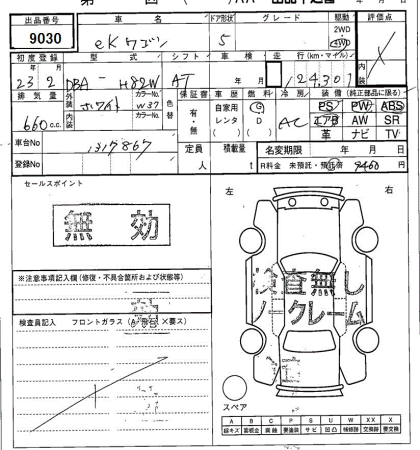 出品番号 車名 ドア形状 グレード 駆動 評価点
9030 eKワゴン 5 2WD 4WD
初度登録 型式 シフト 車検 走行(km・マイル) 内装
23年 2月 DBA-H82W AT 年 月 124,301
排気量 外装 カラーNo. 色替 保証書 車歴 燃料 冷房 装備(純正部品に限る)
660c.c. ホワイト W37 有・無 自家用 レンタ G D AC PS PW ABS
内装 カラーNo. エアB AW SR
革 ナビ TV
車台No 1317867 定員 人 積載量 t 名変期限 年 月 日
登録No R料金 未預託・預託済 9460円
セールスポイント 左 右
無効
※注意事項記入欄(修復・不具合箇所および状態等)
検査無し
ノークレーム
検査員記入 フロントガラス(A・飛石・×要ス)
スペア
A B C P S U W X XX
線キズ 腐蝕 要塗装 サビ 凹凸 補修跡 交換跡 要交換